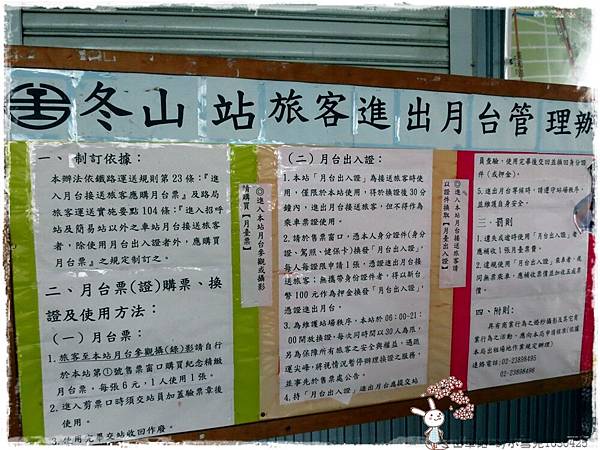 冬山站旅客進出月台管理辦
一、制訂依據：
本辦法依鐵路運送規則第23條：『進
入月台接送旅客應購月台票』及路局
旅客運送實施要點104條：『進入招呼
站及簡易站以外之車站月台接送旅客
者，除使用月台出入證者外，應購買
月台票』之規定制訂之。
二、月台票(證)購票、換
證及使用方法：
(一) 月台票：
1. 旅客至本站月台參觀攝(錄)影請自行
於本站第①號售票窗口購買紀念精緻
月台票，每張6元，1人使用1張。
2. 進入剪票口時須交站員加蓋驗票章後
使用。
3. 使用完畢交站收回作廢。
◎進入本站月台參觀或攝影
請購買【月臺票】
(二) 月台出入證：
1. 本站「月台出入證」為接送旅客時使
用，僅限於本站使用，得於換證後30分
鐘內，進出月台接送旅客，但不得作為
乘車票證使用。
2. 請於售票窗口，憑本人身分證件(身分
證、駕照、健保卡)換發「月台出入證」，
每人每證限申請1張，憑證進出月台接
送旅客；無攜帶身份證件者，得以新台
幣100元作為押金換發「月台出入證」，
憑證進出月台。
3. 為維護站場秩序，本站於06：00-21：
00開放換證，每次同時間以30人為限，
另為保障所有旅客之安全與權益，適逢
運尖峰，將視情況暫停辦理換證之服務，
並事先於售票處公告。
4. 持「月台出入證」進出月台應提交站
◎進入本站月台接送旅客請
以證件換取【月臺出入證】
員查驗，使用完畢後交回並換回身分證
件（或押金）。
5. 進出月台等候時，請遵守站場秩序，
並維護自身安全。
三、罰則
1. 遺失或逾時使用「月台出入證」者
應補收1張月臺票費。
2. 違規使用「月台出入證」乘車者，視
同無票乘車，應補收票價並加收五成票
價。
四、附則：
具有商業行為之婚紗攝影及其它商
業行為之活動，應向本局申請核准(依據
本局出租場地作業規定辦理)
連絡電話：02-23898495
02-23898496